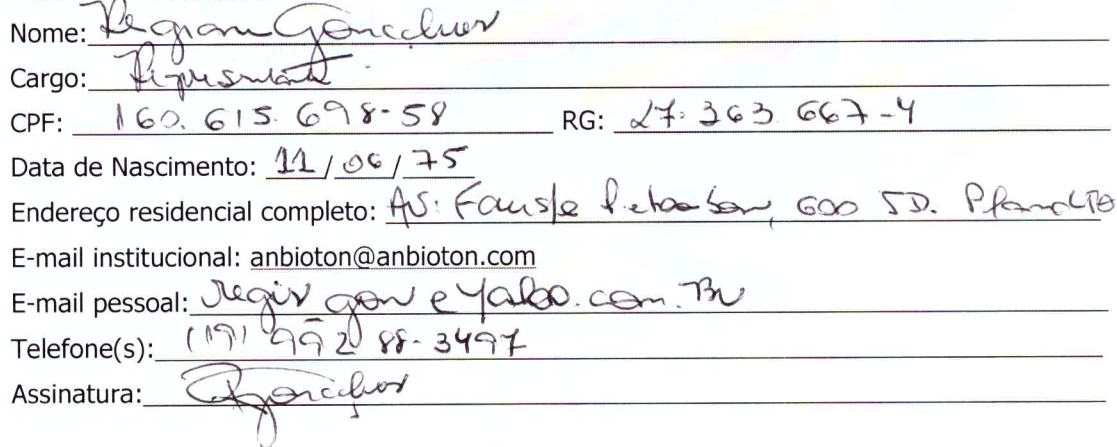 Nome: Regiane Gonçalves
Cargo: Representante
CPF: 160.615.698-58 RG: 27.363.667-4
Data de Nascimento: 11/06/75
Endereço residencial completo: AV: Fausto 600 JD.
E-mail institucional: anbioton@anbioton.com
E-mail pessoal:
Telefone(s): (19) 99288-3497
Assinatura: RGonçalves